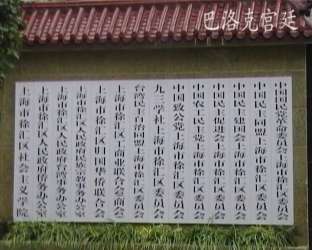 巴洛克宫廷
中国国民党革命委员会上海市徐汇区委员会
中国民主同盟上海市徐汇区委员会
中国民主建国会上海市徐汇区委员会
中国民主促进会上海市徐汇区委员会
中国农工民主党上海市徐汇区委员会
中国致公党上海市徐汇区委员会
九三学社上海市徐汇区委员会
台湾民主自治同盟上海市徐汇区委员会
上海市徐汇区工商业联合会（商会）
上海市徐汇区归国华侨联合会
上海市徐汇区人民政府民族宗教事务办公室
上海市徐汇区人民政府台湾事务办公室
上海市徐汇区人民政府侨务办公室
上海市徐汇区社会主义学院